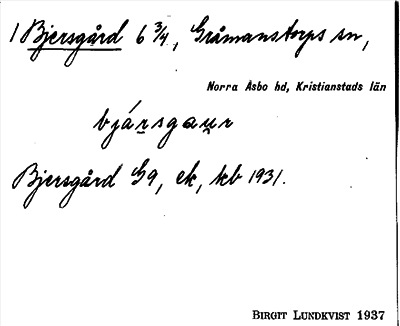 1 Bjersgård 6 3/4, Gråmanstorps sn,
Norra Åsbo hd, Kristianstads län
bjársgaur
Bjersgård G9, ek, kb 1931.
BIRGIT LUNDKVIST 1937